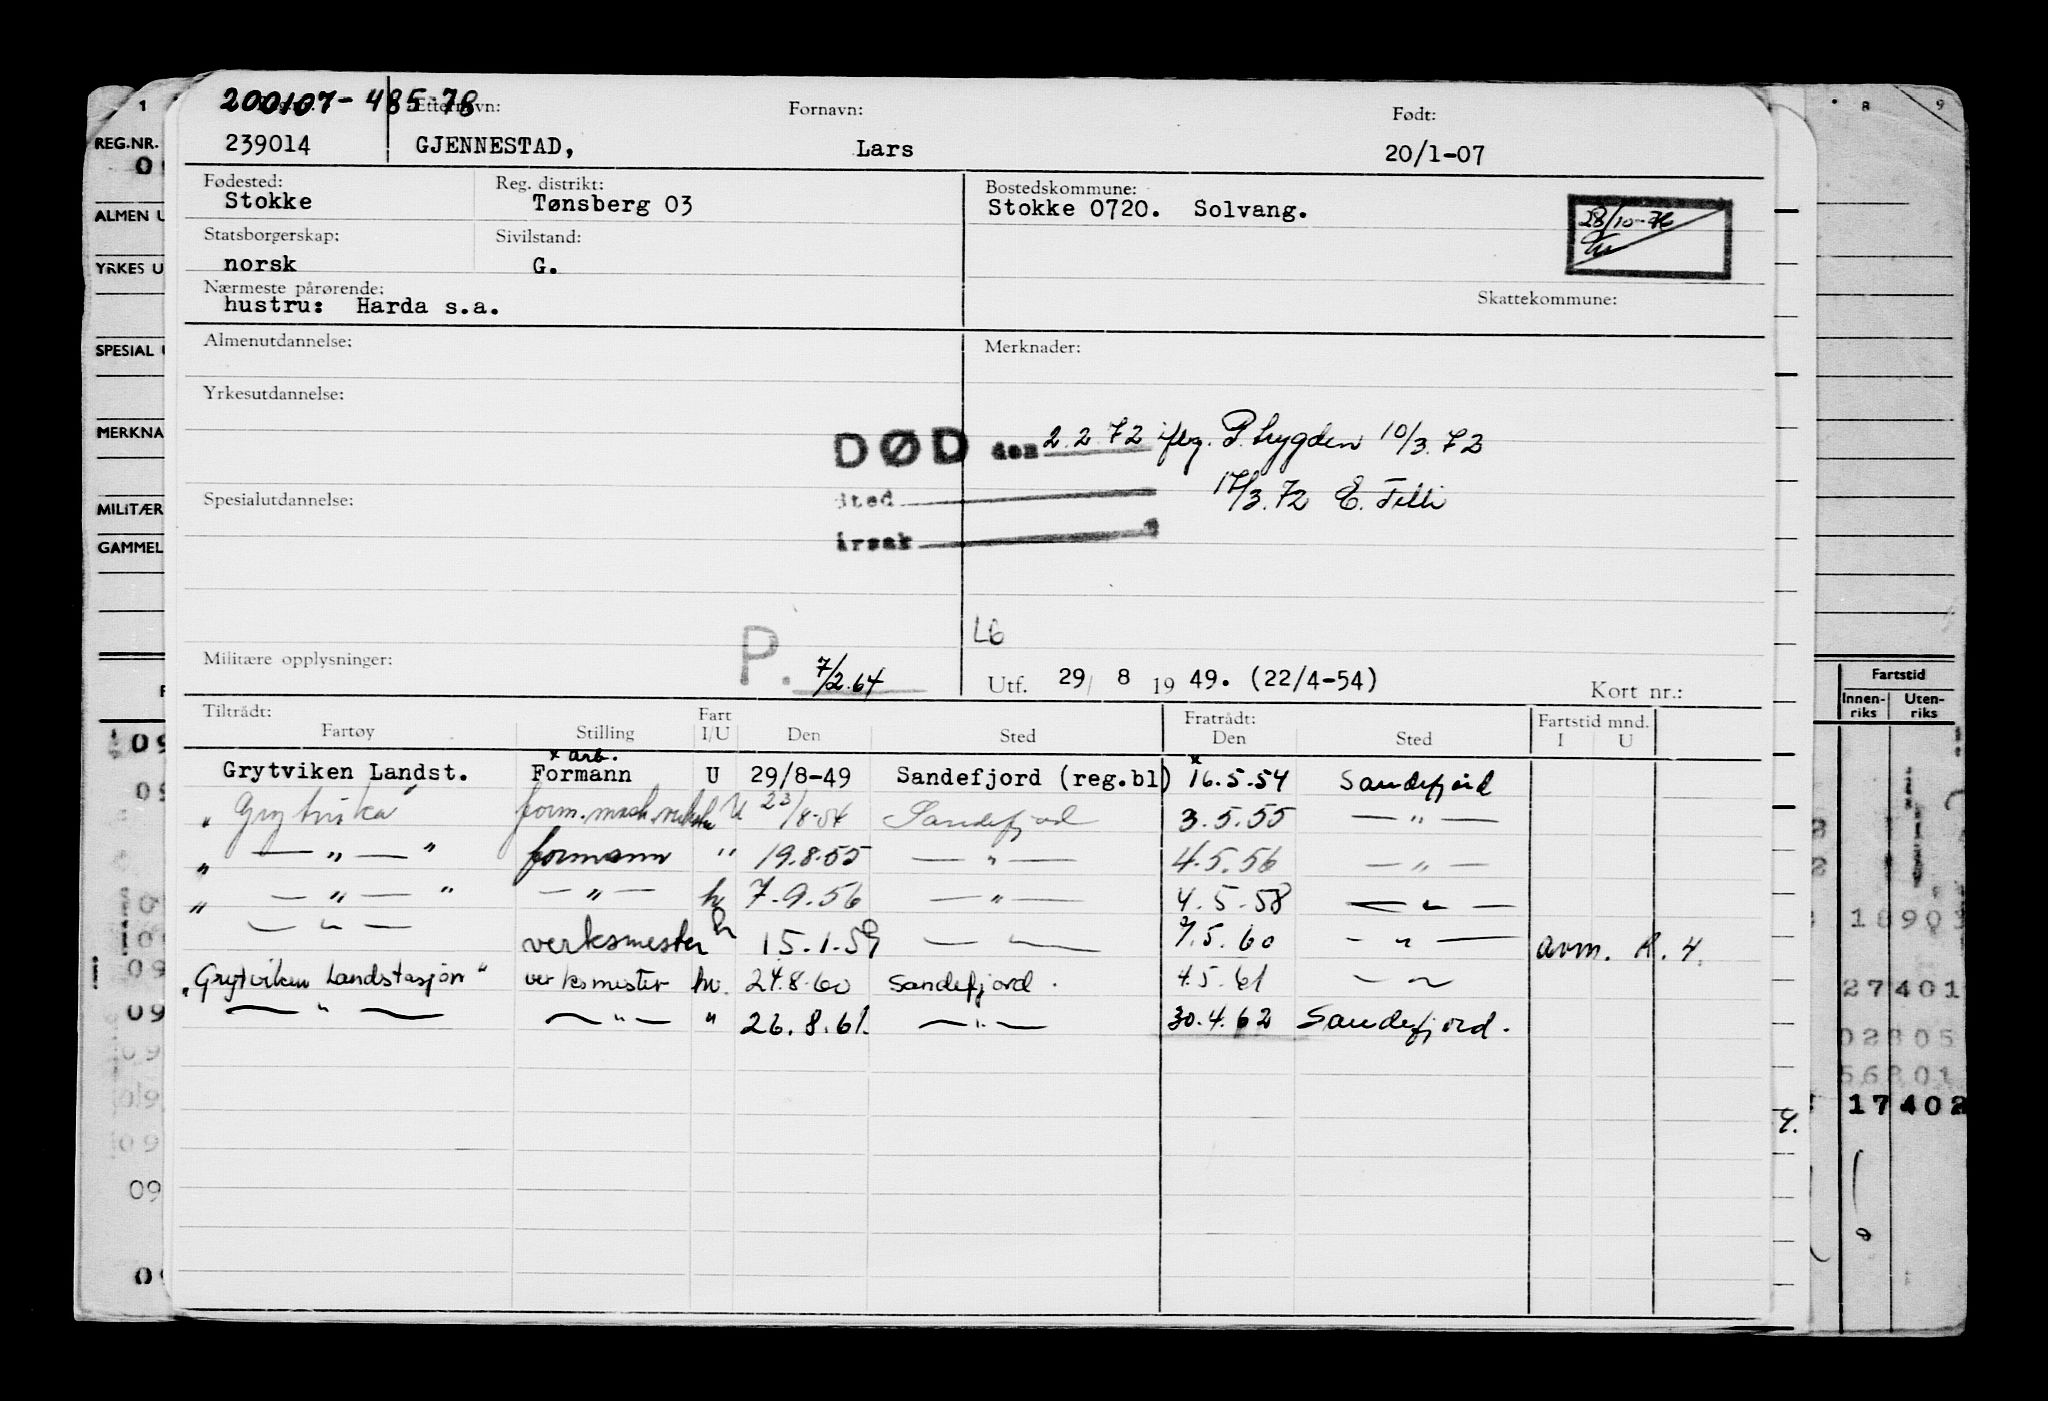 200107-485-78
Etternavn: Fornavn: Født:
239014 GJENNESTAD, Lars 20/1-07
Fødested: Reg. distrikt: Bostedskommune:
Stokke Tønsberg 03 Stokke 0720. Solvang.
28/10-76
Statsborgerskap: Sivilstand:
norsk G.
Nærmeste pårørende: Skattekommune:
hustru: Harda s.a.
Almenutdannelse: Merknader:
Yrkesutdannelse:
DØD den 2.2.72 iflg. P. trygden 10/3.72
Spesialutdannelse: Sted 17/3.72 E.
årsak
L6
Militære opplysninger: P. 7/2.64 Utf. 29/ 8 19 49. (22/4-54) Kort nr.:
Tiltrådt: Fart Fratrådt: Fartstid mnd.
Fartøy Stilling I/U Den Sted Den Sted I U
x arb. x
Grytviken Landst. Formann U 29/8-49 Sandefjord (reg.bl) 16.5.54 Sandefjord
" Grytvika " form. U 23/8-54 Sandefjord 3.5.55 — " —
" — " — " formann " 19.8.55 — " — 4.5.56 — " —
" — " — " — " — hv 7.9.56 — " — 4.5.58 — " —
— " — verksmester 15.1.59 — " — 7.5.60 — " — avm. R. 4.
"Grytviken Landstasjon" verksmester hv. 24.8.60 Sandefjord. 4.5.61 — " —
— " — — " — " 26.8.61. — " — 30.4.62 Sandefjord.
1
REG.NR.
0
ALMEN U
YRKES U
SPESIAL U
MERKNA
MILITÆR
GAMMEL
F
09
09
09
09
09
09
09
09
8 9
Fartstid
Innenriks Utenriks
18903
27401
02805
56801
17402
4.